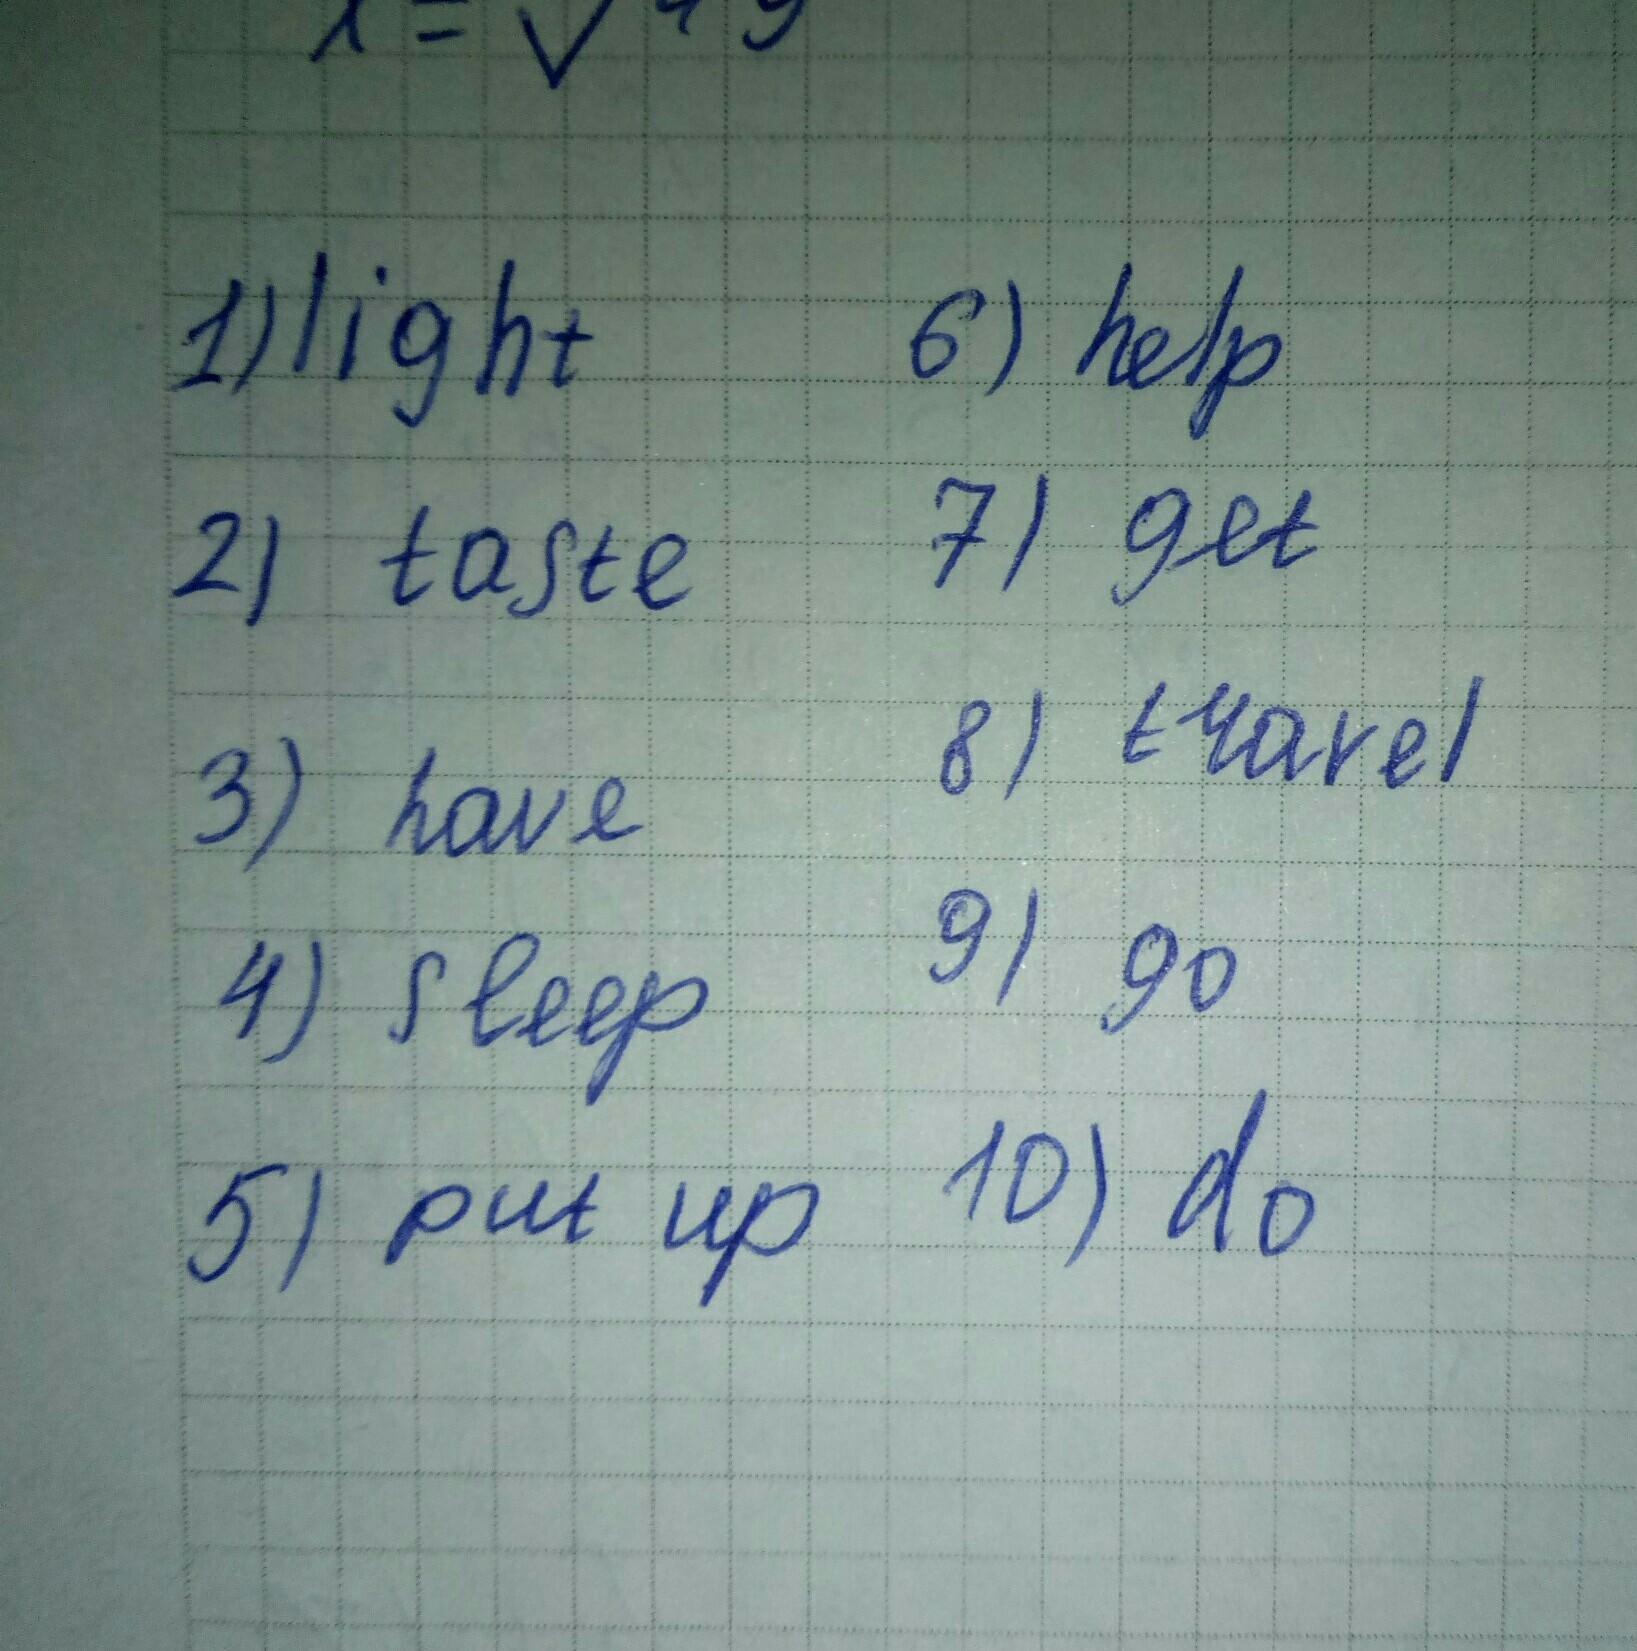 x = √49
1) light
2) taste
3) have
4) sleep
5) put up
6) help
7) get
8) travel
9) go
10) do